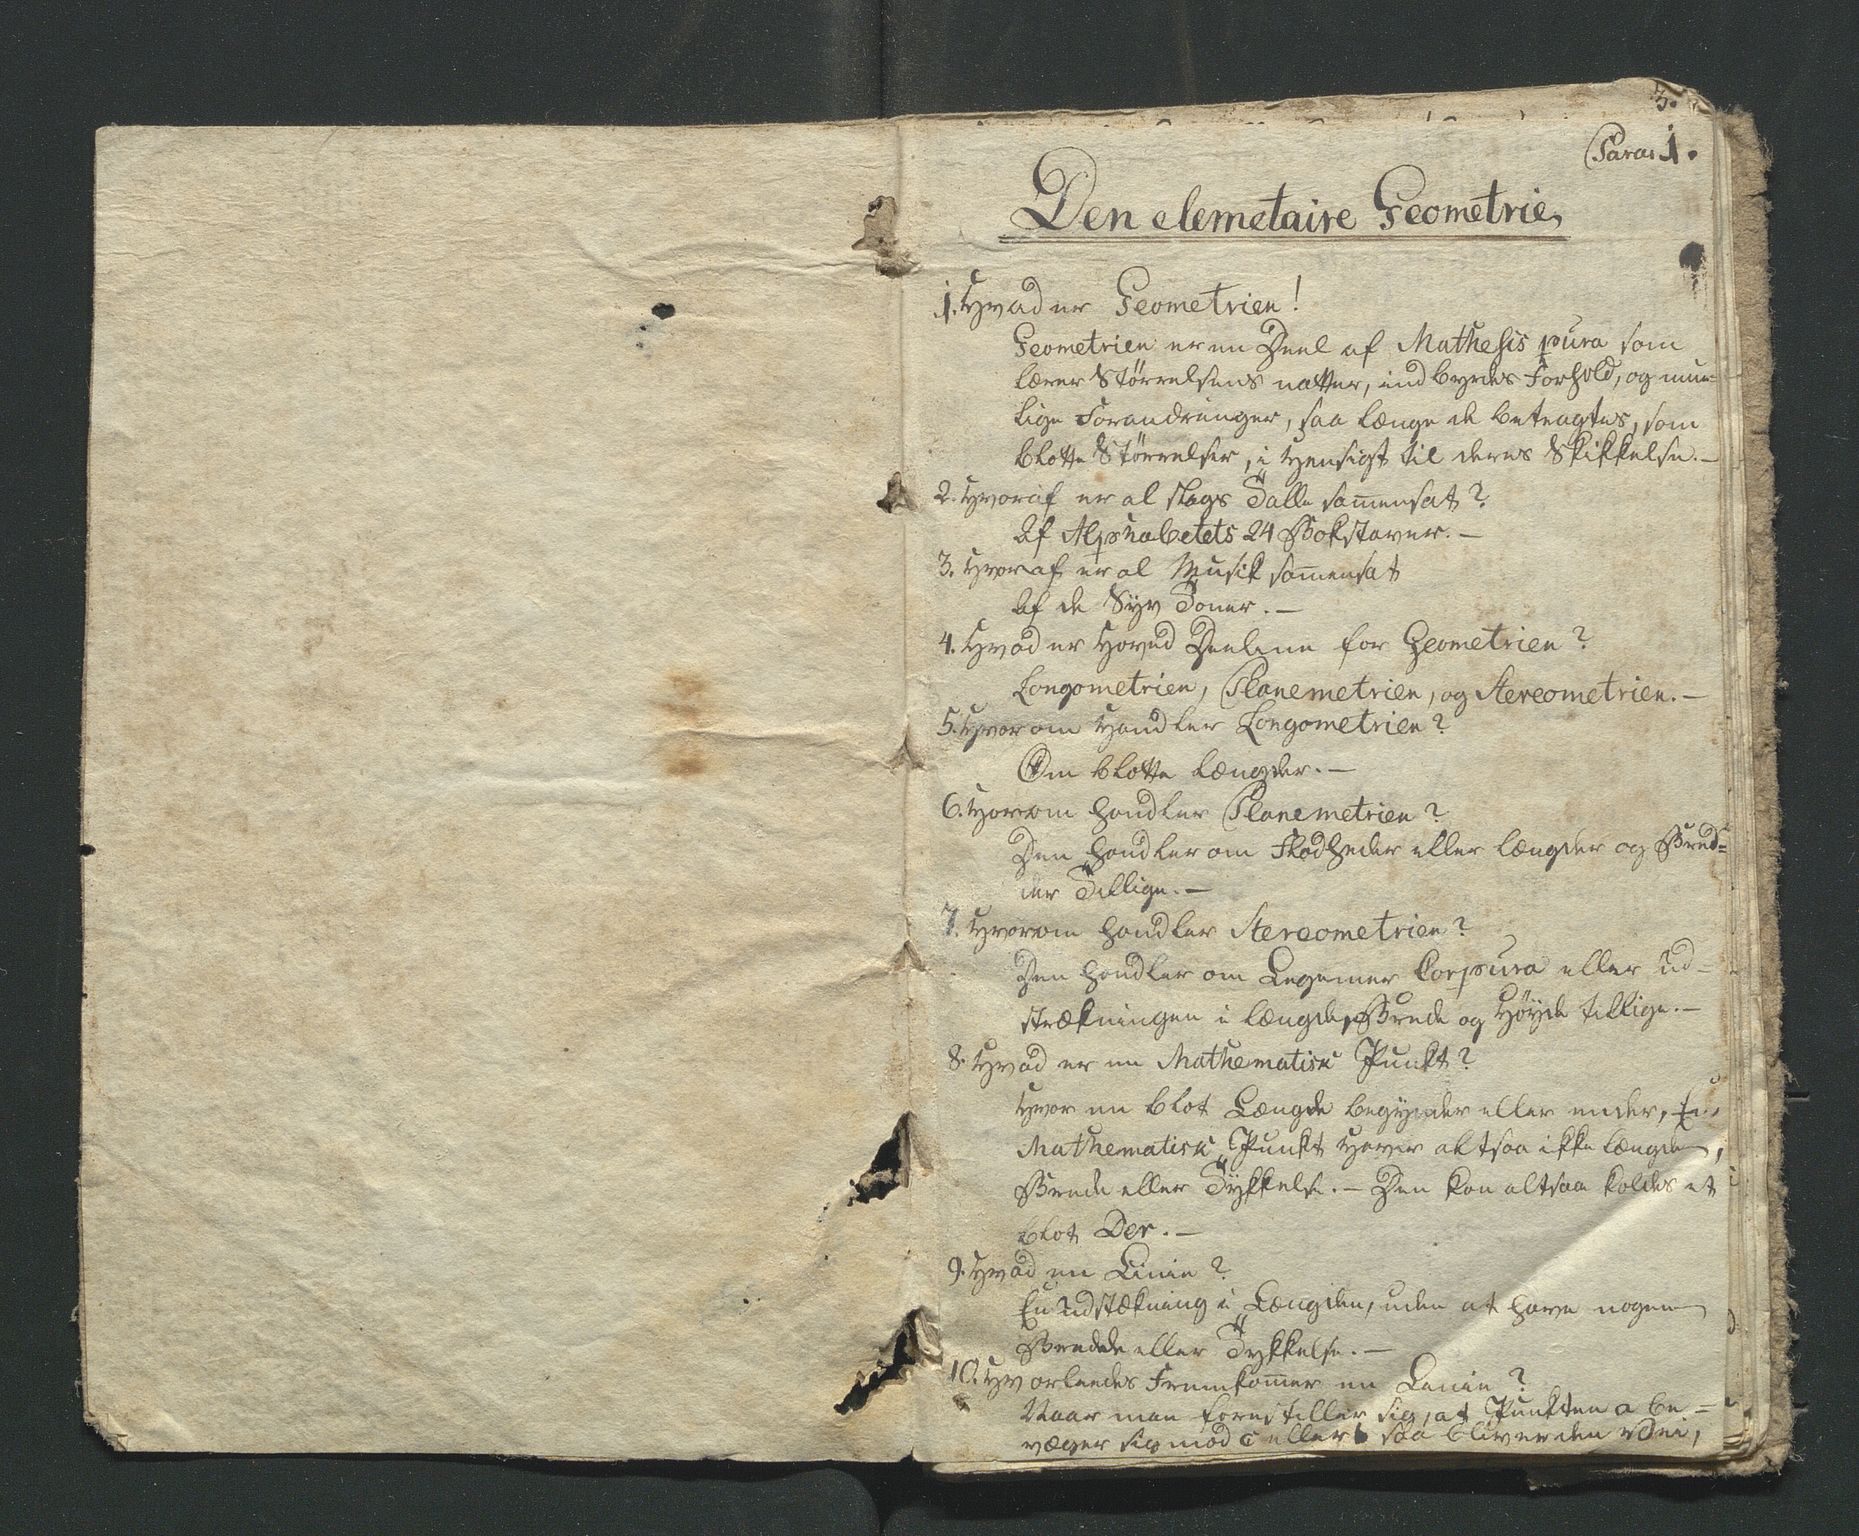 3.
Para. 1.
Den elemetaire Geometrie,
1. Hvad er Geometrien!
Geometrien er en Deel af Mathesis pura som
lærer Størrelsens natter, indbyrdes Forhold, og mue-
lige Forandringer, saa længe de betragtes, som
blotte Størrelser, i Hensigt til deres Skikkelse. —
2. Hvoraf er al slags Talle sam̄ensat?
Af Alphabetets 24 Bokstaver. —
3. Hvoraf er al Musik sam̄ensat
Af de Syv Toner. —
4. Hvad er Hoved Deelene for Geometrien?
Longometrien, Planemetrien, og Stereometrien. —
5. Hvorom Handler Longometrien?
Om blotte længder. —
6. Hvorom handler Planemetrien?
Den handler om Fladheder eller længder og Bred-
der Tillige. —
7. Hvorom handler Stereometrien?
Den handler om Legemer Corpura eller ud-
strækningen i længde, Brede og Høyde tillige. —
8. Hvad er en Mathematisk Punkt?
Hvor en blot Længde begynder eller ender, En
Mathematisk Punkt Haver altsaa ikke længde,
Brede eller Tykkelse. — Den kan altsaa kaldes et
blot Der. —
9. Hvad en Linie?
En Udstækning i Længden, uden at have nogen
Bredde eller Tykkelse. —
10. Hvorleedes Fremkom̄er en Linie?
Naar man forestiller sig, at Punkten a be-
væger sig mod c eller b saa bliver den Vei,